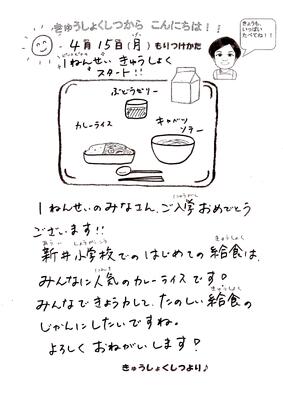 きゅうしょくしつから こんにちは!!
4月15日(月) もりつけかた
1ねんせい きゅうしょく
スタート!!
きょうも、
いっぱい
たべてね!!
ぶどうゼリー
カレーライス
キャベツ
ソテー
1ねんせいのみなさん、ご入学おめでとう
ございます!!
新井小学校でのはじめての給食は、
みんなに人気のカレーライスです!
みんなできょう力して、たのしい給食の
じかんにしたいですね。
よろしく おねがいします!
きゅうしょくしつより♪